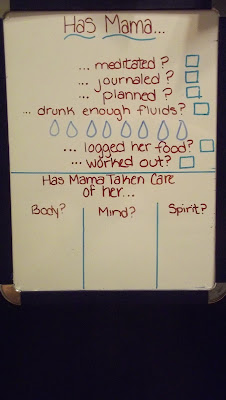 Has Mama...
... meditated?
... journaled?
... planned?
... drunk enough fluids?
... logged her food?
... worked out?
Has Mama Taken Care
of her...
Body? Mind? Spirit?